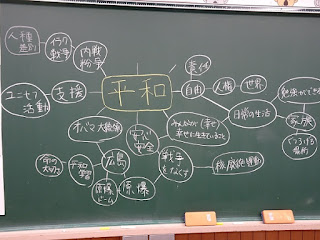 人種
差別
イラク
戦争
内戦
紛争
責任
平和
自由
人権
世界
勉強ができる
ユニセフ
活動
支援
日常の生活
家族
オバマ大統領
安心
安全
みんなが(幸せ)
幸せに生きていること
命の
大切さ
平和
学習
広島
戦争
をなくす
核廃絶運動
原爆
ドーム
原爆